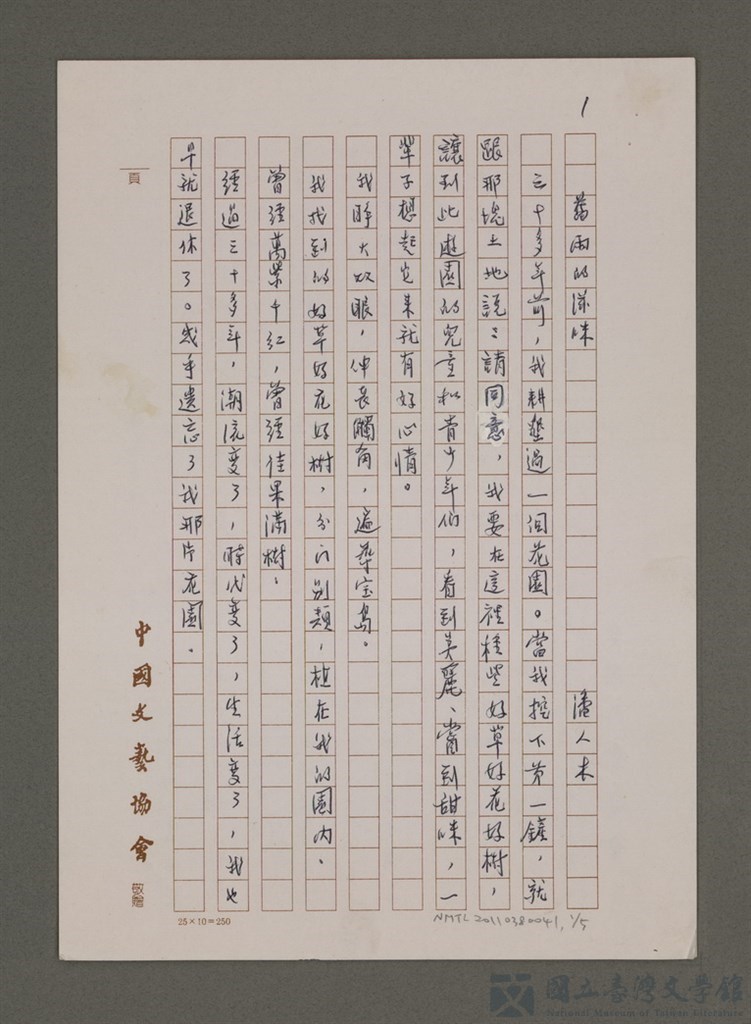 1
舊雨的滋味 潘人木
三十多年前，我耕墾過一個花園。當我挖下第一鏟，就
跟那塊土地說：請同意，我要在這裡植些好草好花好樹，
讓到此遊園的兒童和青少年們，看到美麗、嘗到甜味，一
輩子想起它來就有好心情。
我睜大双眼，伸長觸角，遍尋宝島。
我找到的好草好花好樹，分门別類，植在我的園內。
曾經萬紫千紅，曾經佳果滿樹。
經過三十多年，潮流變了，時代變了，生活變了，我也
早就退休了。或乎遺忘了我那片花園。
頁
中國文藝協會 敬贈
25×10=250
NMTL 20110380041, 1/5
國立臺灣文學館
National Museum of Taiwan Literature